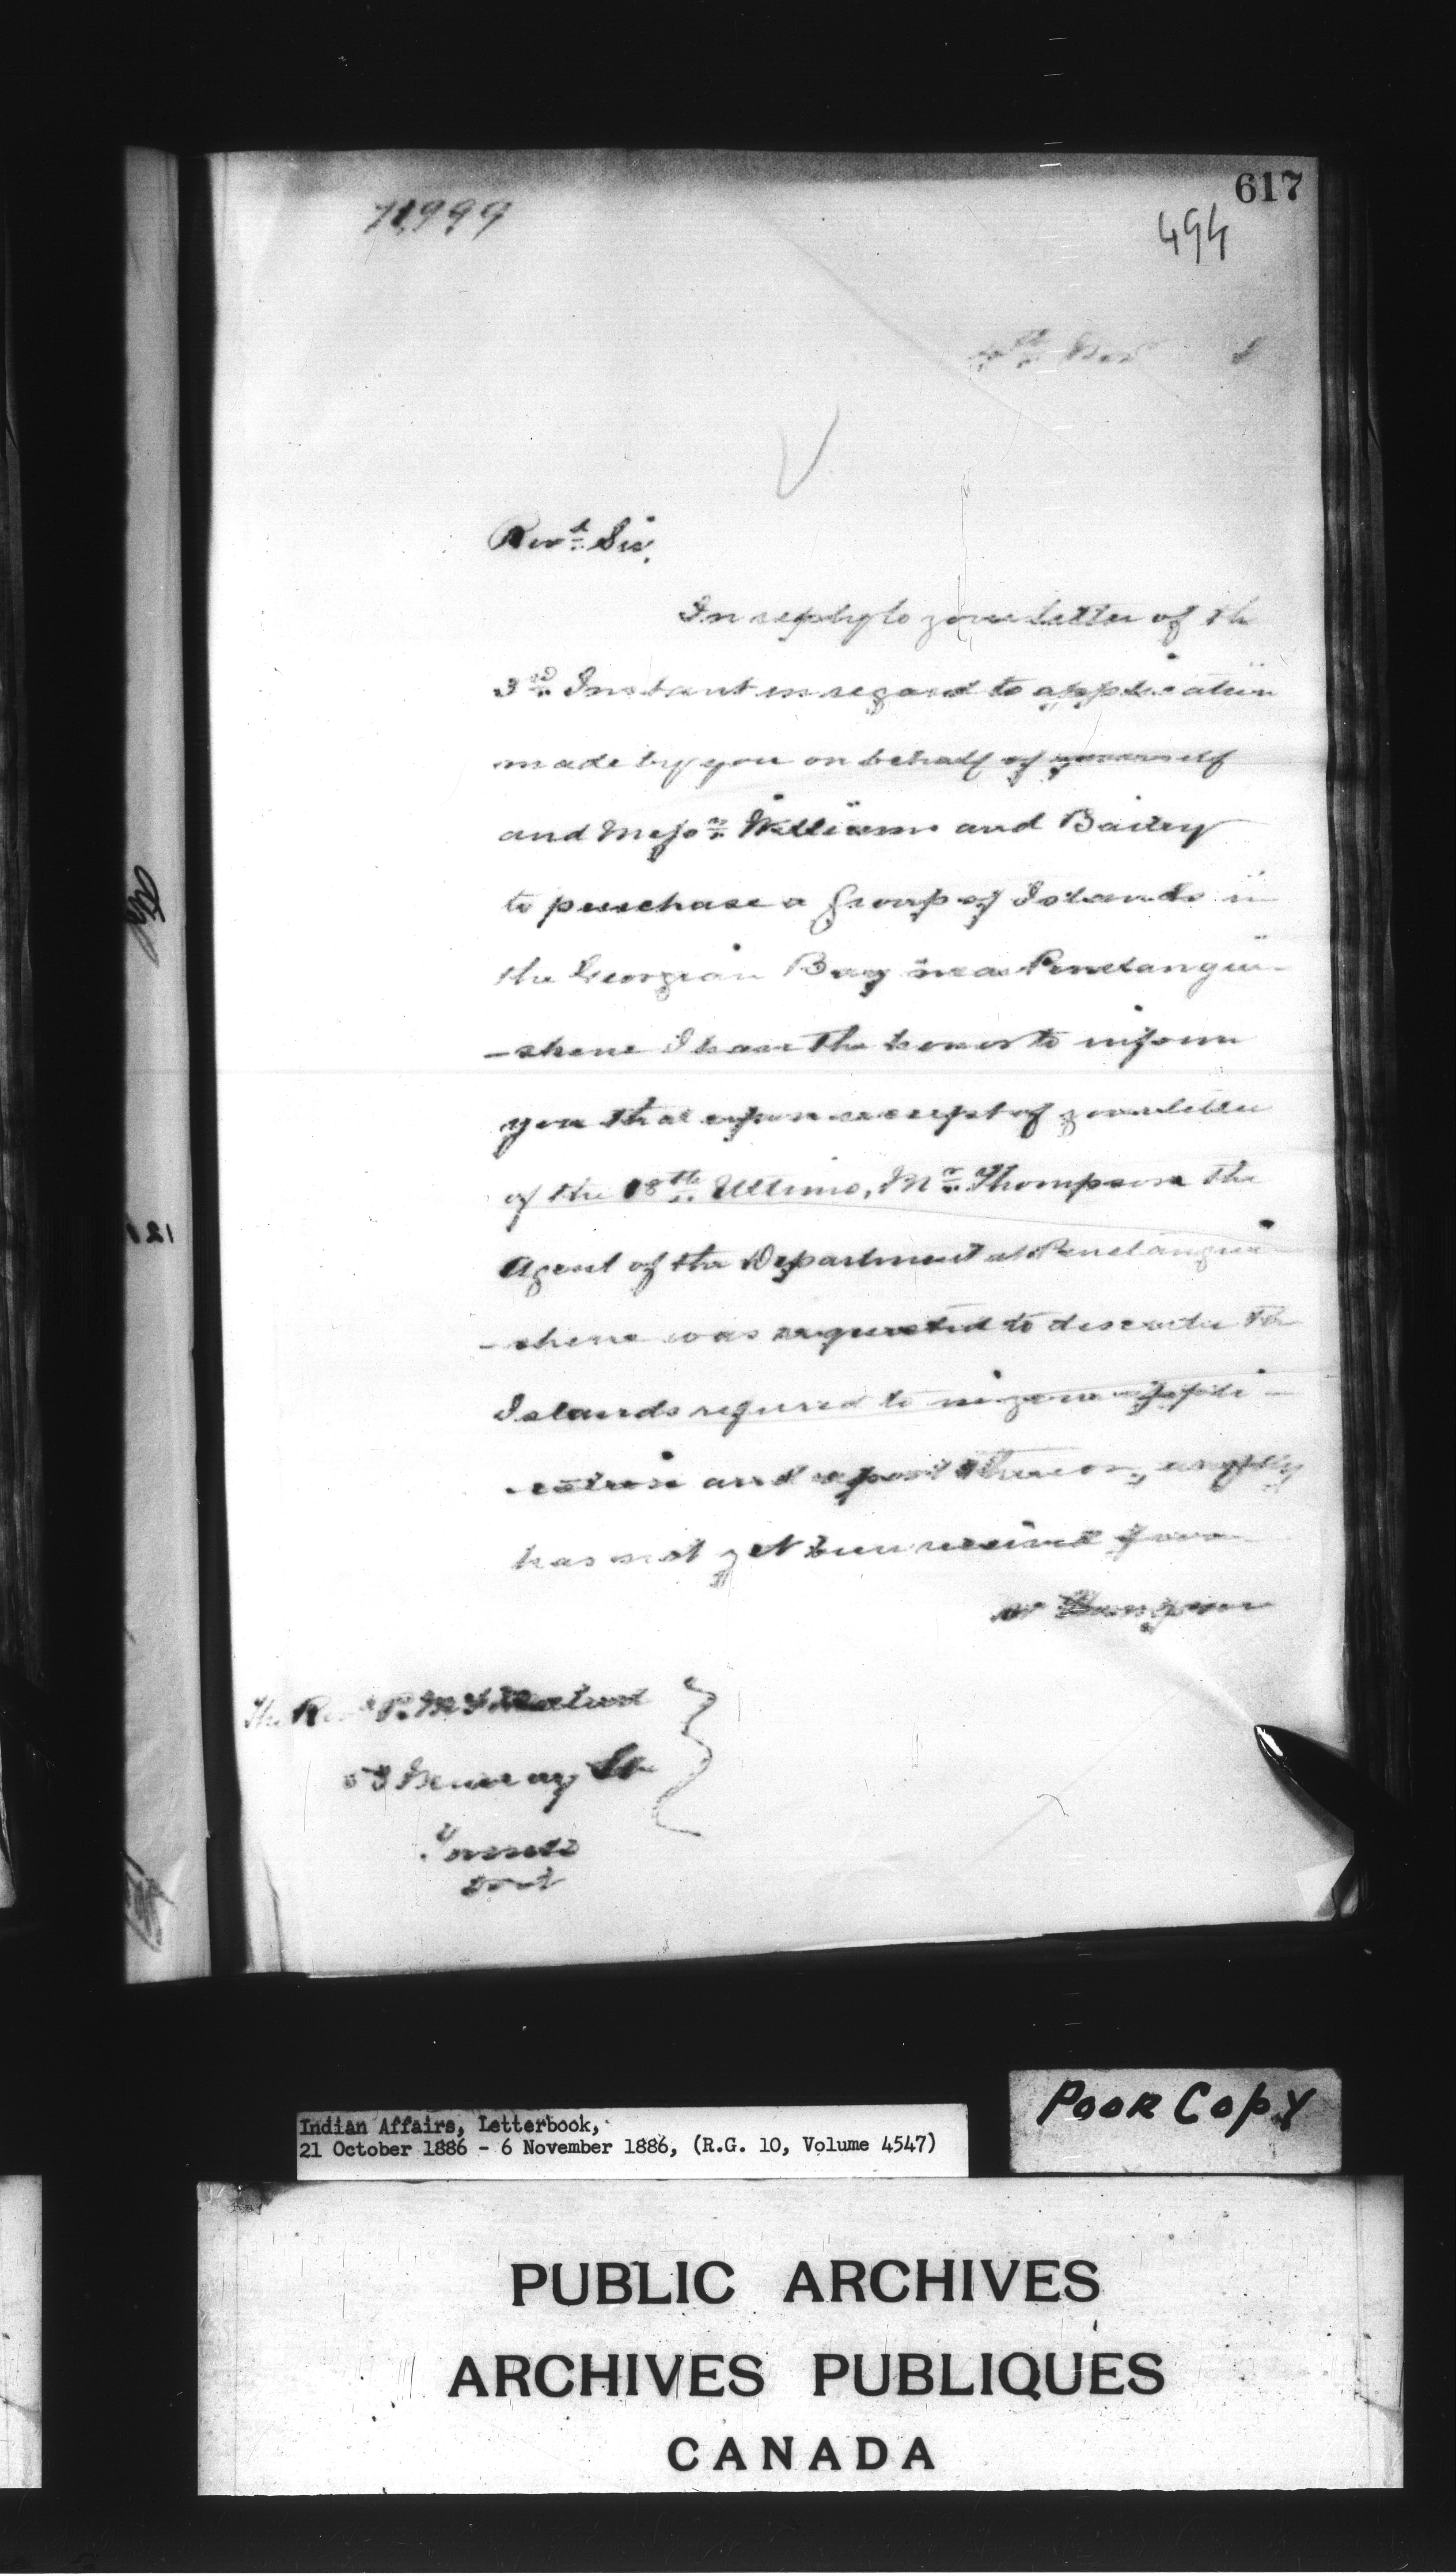 617
71,999
494
Nov
Revd. Sir,
In reply to your letter of the
3rd. Instant in regard to application
made by you on behalf of yourself
and Messrs. Williams and Bailey
to purchase a group of Islands in
the Georgian Bay near Penetangui-
-shene I have the honor to inform
you that upon receipt of your letter
of the 18th. Ultimo, Mr. Thompson the
Agent of the Department at Penetangui-
-shene was requested to describe the
Islands referred to in your appli-
-cation and report thereon, a reply
has not yet been received from
Mr Thompson
The Revd P.
Murray St
Toronto
Ont
Indian Affairs, Letterbook,
21 October 1886 - 6 November 1886, (R.G. 10, Volume 4547)
POOR COPY
PUBLIC ARCHIVES
ARCHIVES PUBLIQUES
CANADA